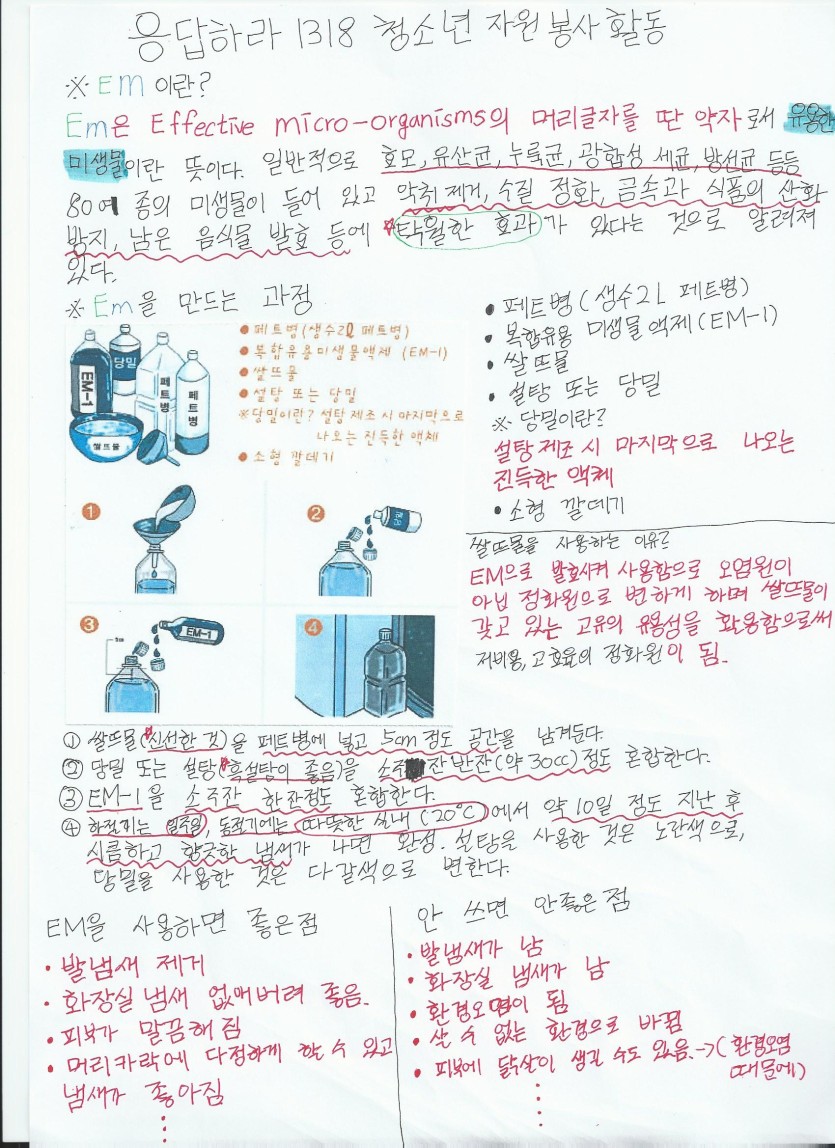 응답하라 1318 청소년 자원봉사활동
※ Em 이란?
Em은 Effective micro-organisms의 머리글자를 딴 약자로서 유용한
미생물이란 뜻이다. 일반적으로 효모, 유산균, 누룩균, 광합성 세균, 방선균 등등
80여 종의 미생물이 들어 있고 악취 제거, 수질 정화, 금속과 식품의 산화
방지, 남은 음식물 발효 등에 탁월한 효과가 있다는 것으로 알려져
있다.
※ Em을 만드는 과정
EM-1
당밀
페트병
페트병
쌀뜨물
● 페트병(생수2ℓ 페트병)
● 복합유용미생물액제 (EM-1)
● 쌀뜨물
● 설탕 또는 당밀
※당밀이란? 설탕제조시 마지막으로
나오는 진득한 액체
● 소형 깔데기
1
2
당밀
3
5cm
EM-1
4
• 페트병(생수2L 페트병)
• 복합유용 미생물액제(EM-1)
• 쌀뜨물
• 설탕 또는 당밀
※ 당밀이란?
설탕제조 시 마지막으로 나오는
진득한 액체
• 소형 깔데기
쌀뜨물을 사용하는 이유?
EM으로 발효시켜 사용함으로 오염원이
아닌 정화원으로 변하게 하며 쌀뜨물이
갖고 있는 고유의 유용성을 활용함으로써
저비용, 고효율의 정화원이 됨.
① 쌀뜨물(신선한 것)을 페트병에 넣고 5cm 정도 공간을 남겨둔다.
② 당밀 또는 설탕(흑설탕이 좋음)을 소주잔 반잔(약 30cc)정도 혼합한다.
③ EM-1을 소주잔 한잔정도 혼합한다.
④ 하절기는 일주일, 동절기에는 따뜻한 실내(20°C)에서 약 10일 정도 지난 후
시큼하고 향긋한 냄새가 나면 완성. 설탕을 사용한 것은 노란색으로,
당밀을 사용한 것은 다갈색으로 변한다.
EM을 사용하면 좋은점
• 발냄새 제거
• 화장실 냄새 없애버려 좋음.
• 피부가 말끔해짐
• 머리카락에 다정하게 할 수 있고
냄새가 좋아짐
안 쓰면 안좋은점
• 발냄새가 남
• 화장실 냄새가 남
• 환경오염이 됨
• 살 수 없는 환경으로 바뀜
• 피부에 닭살이 생길 수도 있음.->(환경오염
때문에)